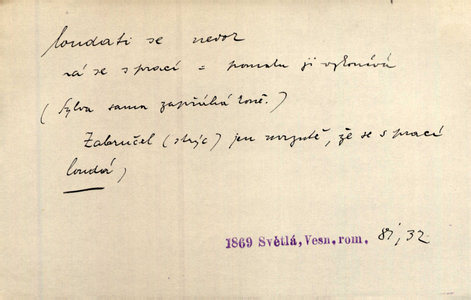 loudati se nedok
ná se s prací = pomalu ji vykonává
(Sylva sama zapřáhá koně.)
Zabručel (strýc) jen mrzutě, že se s prací
loudá,
1869 Světlá, Vesn. rom. 81, 32